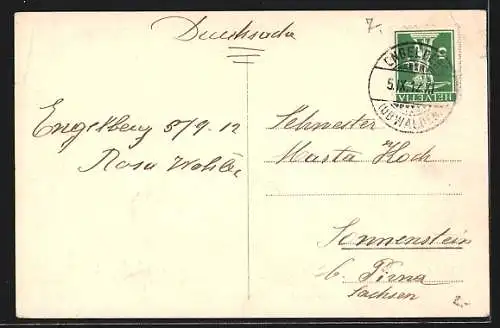 Drucksache
7.-
ENGELBERG
5.IX.12
(OBWALDEN)
HELVETIA
Engelberg 5/9. 12
Rosa Wohler
Schwester
Marta Koch
Sonnenstein
b. Pirna
Sachsen
2.-